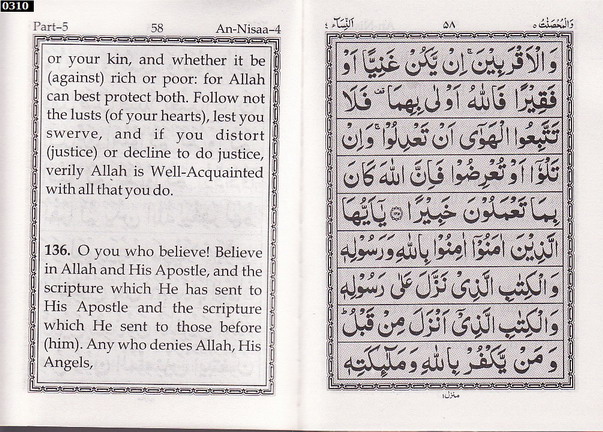 0310
Part–5 58 An-Nisaa–4
or your kin, and whether it be
(against) rich or poor: for Allah
can best protect both. Follow not
the lusts (of your hearts), lest you
swerve, and if you distort
(justice) or decline to do justice,
verily Allah is Well-Acquainted
with all that you do.
136. O you who believe! Believe
in Allah and His Apostle, and the
scripture which He has sent to
His Apostle and the scripture
which He sent to those before
(him). Any who denies Allah, His
Angels,
اَلنِّسَآء ٤ ٥٨ وَالْمُحْصَنٰتُ ٥
وَالْاَقْرَبِيْنَ ۚ اِنْ يَّكُنْ غَنِيًّا اَوْ
فَقِيْرًا فَاللّٰهُ اَوْلٰى بِهِمَا ۫ فَلَا
تَتَّبِعُوا الْهَوٰٓى اَنْ تَعْدِلُوْا ۚ وَاِنْ
تَلْوٗٓا اَوْ تُعْرِضُوْا فَاِنَّ اللّٰهَ كَانَ
بِمَا تَعْمَلُوْنَ خَبِيْرًا ﴿۱۳۵﴾ يٰٓاَيُّهَا
الَّذِيْنَ اٰمَنُوْٓا اٰمِنُوْا بِاللّٰهِ وَرَسُوْلِهٖ
وَالْكِتٰبِ الَّذِيْ نَزَّلَ عَلٰى رَسُوْلِهٖ
وَالْكِتٰبِ الَّذِيْٓ اَنْزَلَ مِنْ قَبْلُ ؕ
وَمَنْ يَّكْفُرْ بِاللّٰهِ وَمَلٰٓئِكَتِهٖ
منزل۱